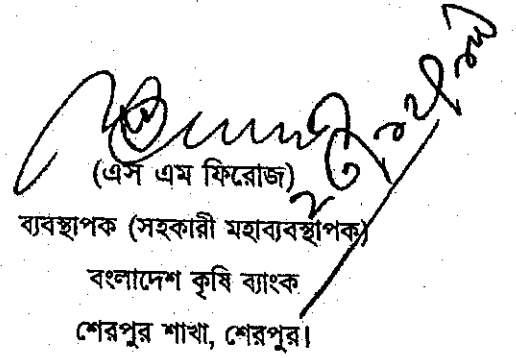 (এস এম ফিরোজ)
ব্যবস্থাপক (সহকারী মহাব্যবস্থাপক)
বাংলাদেশ কৃষি ব্যাংক
শেরপুর শাখা, শেরপুর।